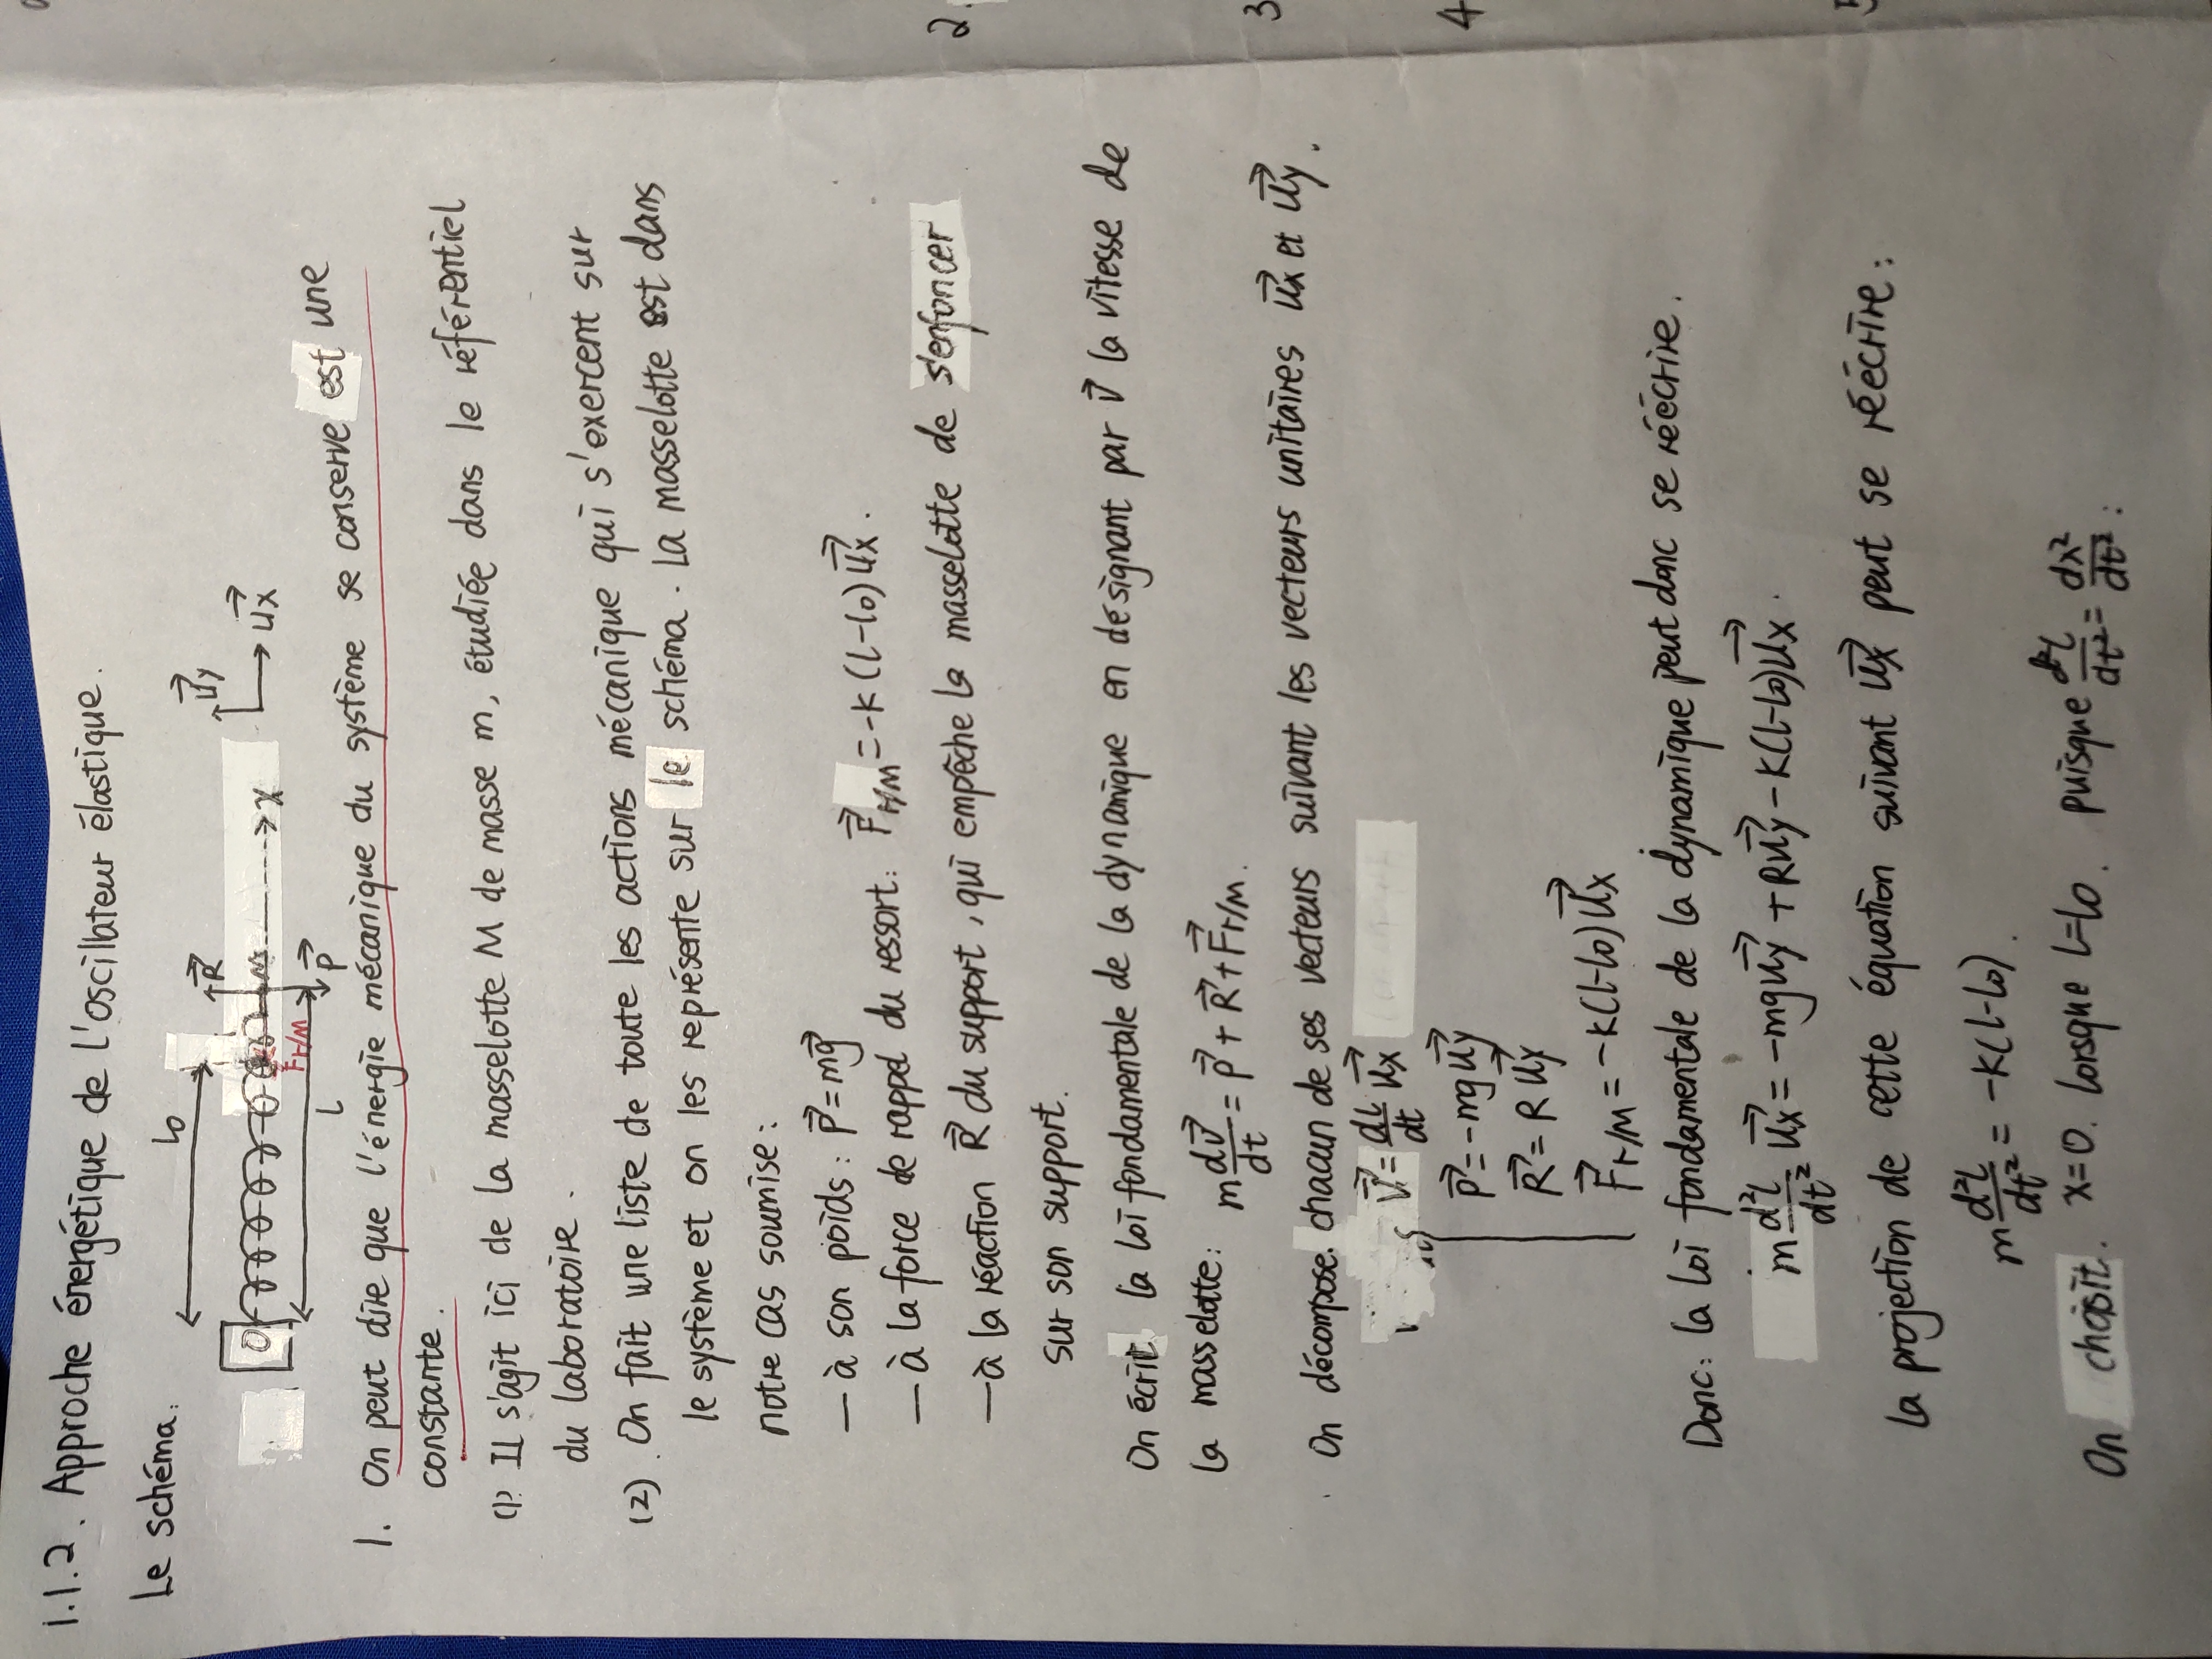 1.1.2. Approche énergétique de l'oscillateur élastique.
Le schéma:
l0
R⃗
u⃗y
O
M
x
u⃗x
Fr/M
l
P⃗
1. On peut dire que l'énergie mécanique du système se conserve est une
constante.
(1). Il s'agit ici de la masselotte M de masse m, étudiée dans le référentiel
du laboratoire.
(2). On fait une liste de toute les actions mécanique qui s'exercent sur
le système et on les représente sur le schéma. La masselotte est dans
notre cas soumise:
— à son poids: P⃗ = mg⃗
— à la force de rappel du ressort: F⃗r/M = -k(l-l0)u⃗x.
— à la réaction R⃗ du support, qui empêche la masselotte de s'enfoncer
sur son support.
On écrit la loi fondamentale de la dynamique en désignant par v⃗ la vitesse de
la masselotte: m dv⃗/dt = P⃗ + R⃗ + F⃗r/M.
On décompose. chacun de ses vecteurs suivant les vecteurs unitaires u⃗x et u⃗y.
v⃗ = dl/dt u⃗x
P⃗ = -mg u⃗y
R⃗ = R u⃗y
F⃗r/M = -k(l-l0)u⃗x
Donc: la loi fondamentale de la dynamique peut donc se réécrire.
m d²l/dt² u⃗x = -mgu⃗y + Ru⃗y - k(l-l0)u⃗x.
la projection de cette équation suivant u⃗x peut se réécrire:
m d²l/dt² = -k(l-l0).
On choisit. x=0. lorsque l=l0. puisque d²l/dt² = dx²/dt²:
2.
3
4
5